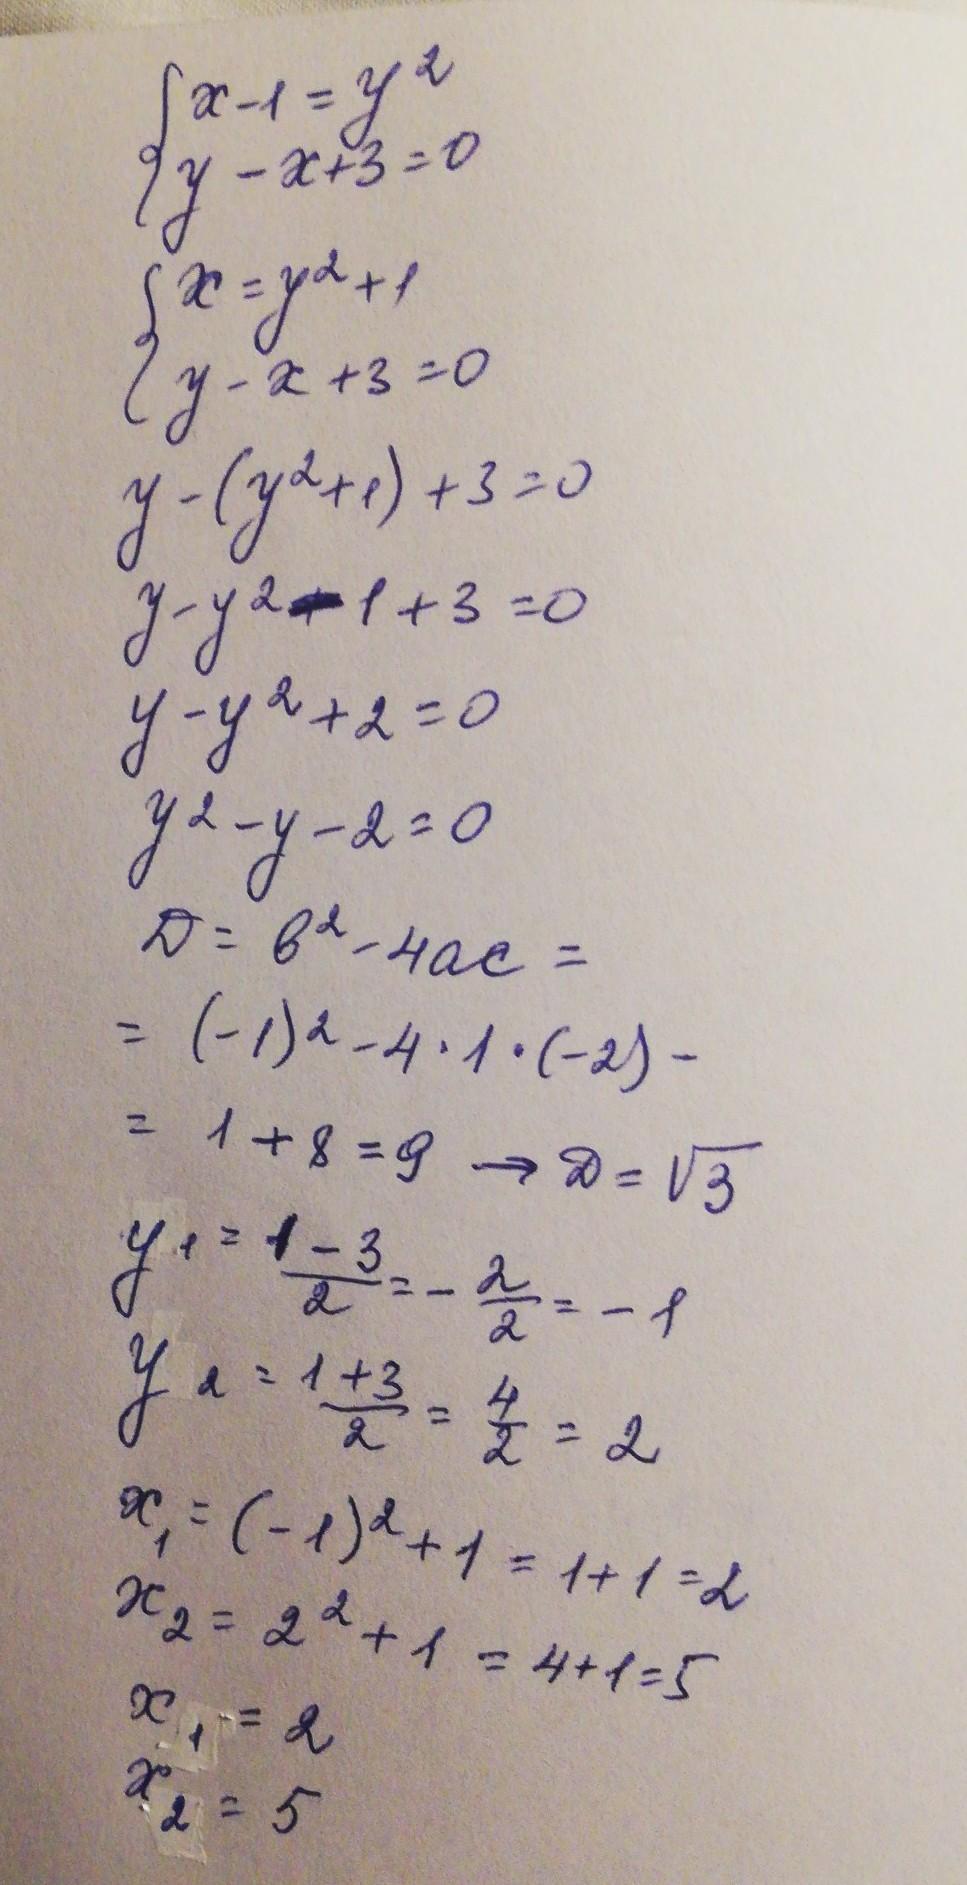 {x-1=y²
{y-x+3=0
{x=y²+1
{y-x+3=0
y-(y²+1)+3=0
y-y²-1+3=0
y-y²+2=0
y²-y-2=0
D=в²-4ac=
=(-1)²-4·1·(-2)-
=1+8=9→D=√3
y₁=1-3/2=-2/2=-1
y₂=1+3/2=4/2=2
x₁=(-1)²+1=1+1=2
x₂=2²+1=4+1=5
x₁=2
x₂=5